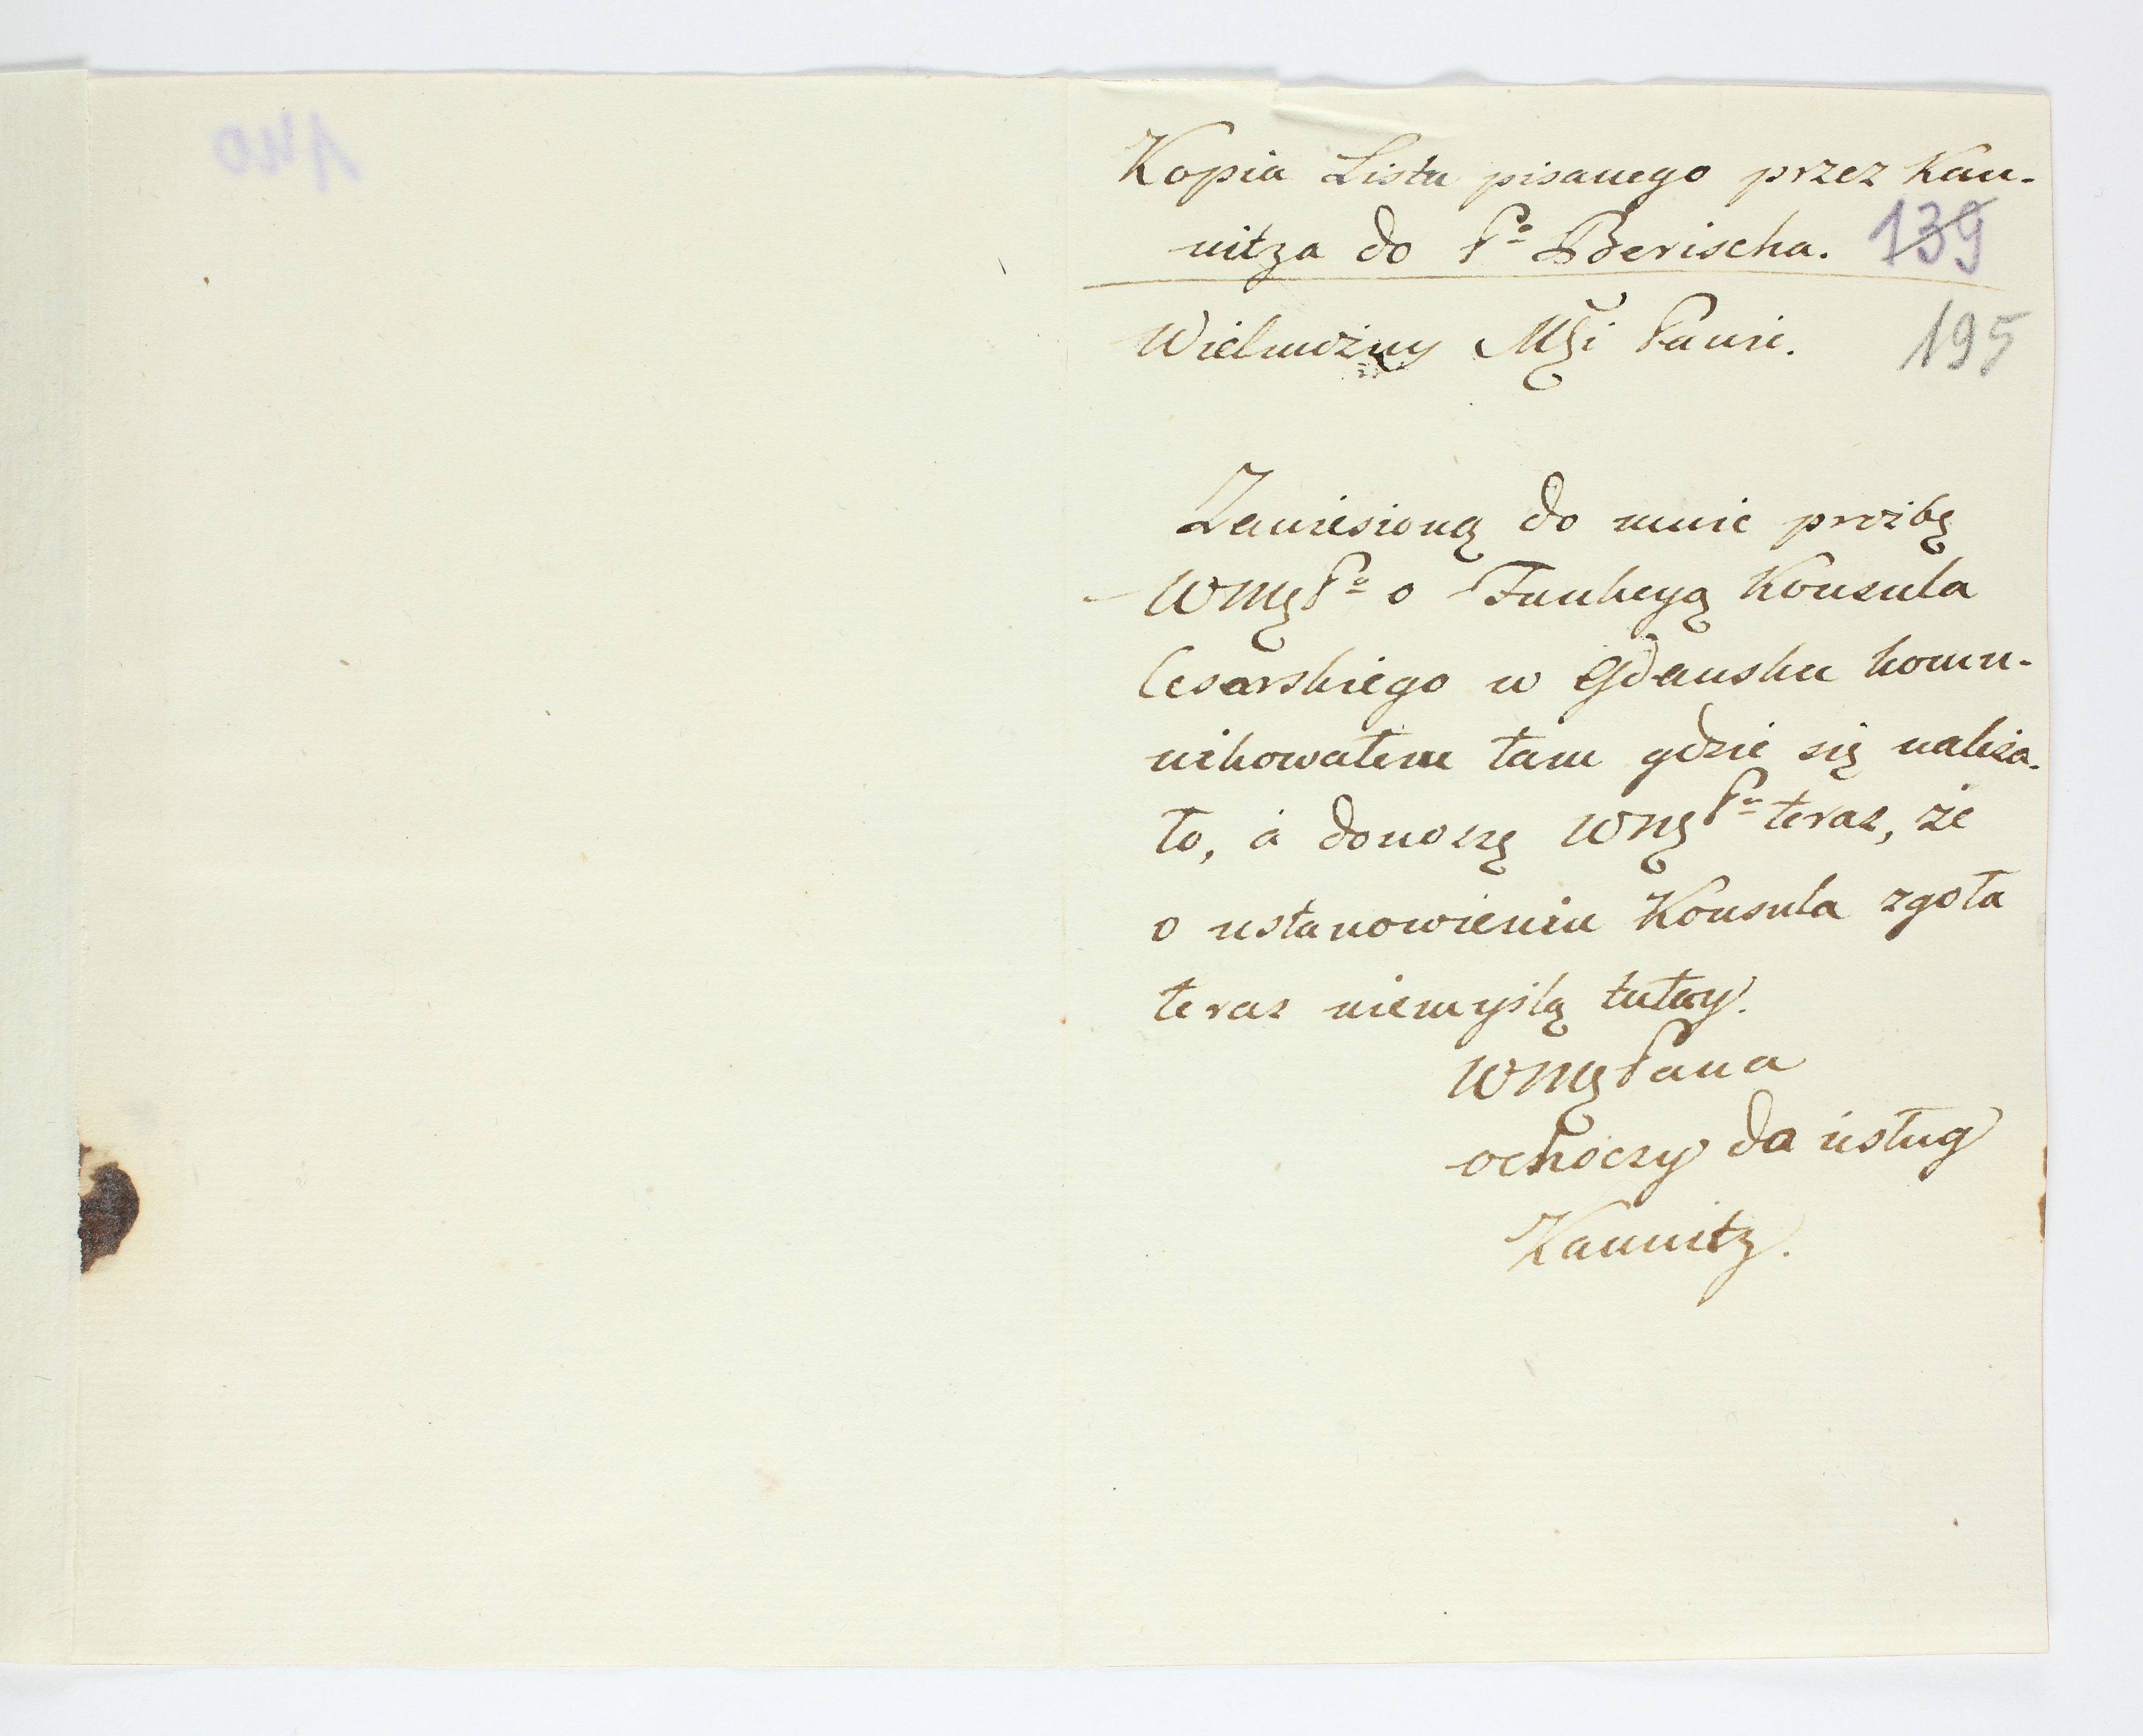 Kopia Listu pisanego przez Kau-
nitza do Pa Berischa. 139
195
Wielmożny Mśći Panie.
Zaniesioną do mnie proźbę
WMę Pa o Funkcyą Konsula
Cesarskiego w Gdansku komu-
nikowałem tam gdzie się należa-
ło, á donoszę WMę Pu teraz, że
o ustanowieniu Konsula zgoła
teraz niemyślą tutay.
WMę Pana
ochoczy do usług
Kaunitz.
140